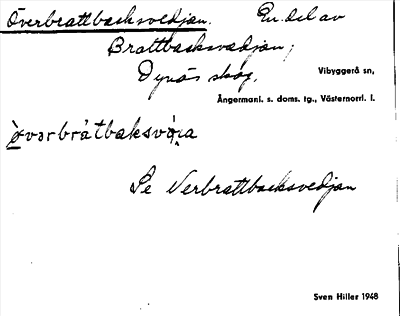 Överbrattbacksvedjan. En del av
Brattbacksvedjan,
Dynäs skog.
Vibyggerå sn,
Ångermanl. s. doms. tg., Västernorrl. l.
Se Nerbrattbacksvedjan
Sven Hiller 1948